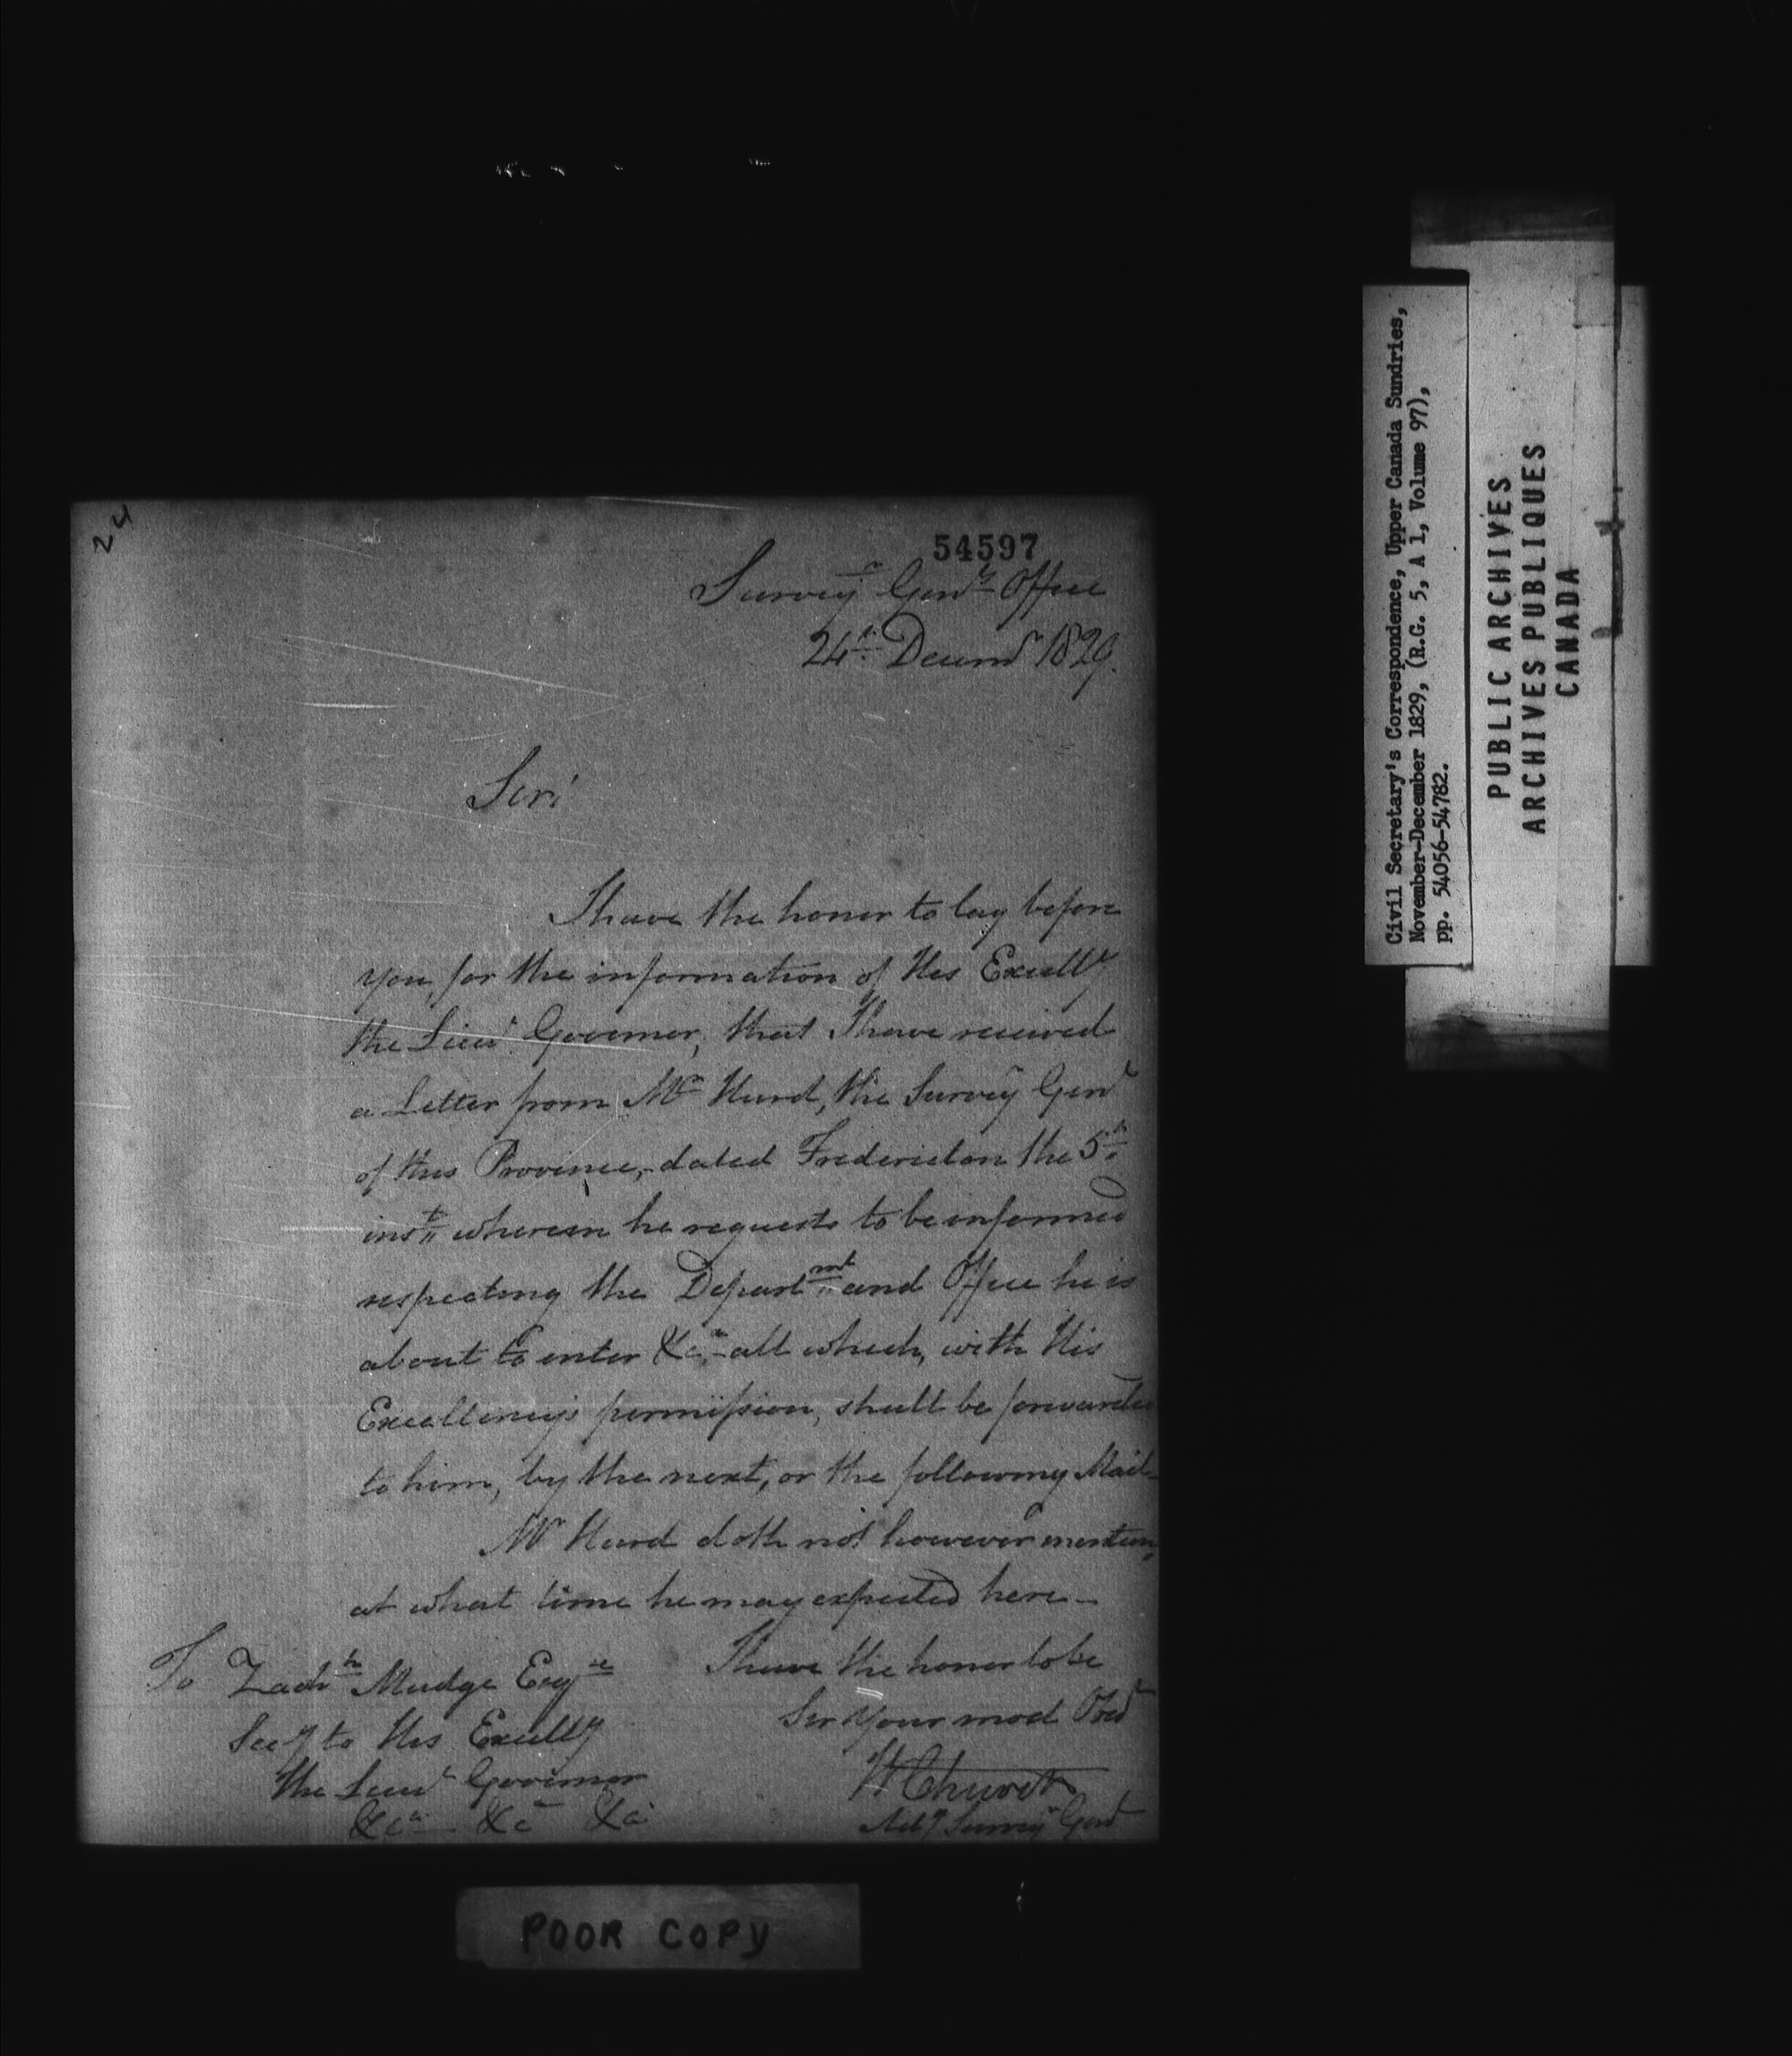 24
54597
Survey^r Gen^ls Office
24^th Decem^r 1829.
Sir,
I have the honor to lay before
you, for the information of His Excell^y
the Lieu^t Governor, that I have received
a Letter from M^r Hurd, the Survey^r Gen^l
of this Province, dated Fredericton the 5^th
ins^t wherein he requests to be informed
respecting the Depart^mt and Office he is
about to enter &c^a, all which, with His
Excellency's permission, shall be forwarded
to him, by the next, or the following Mail
M^r Hurd doth not however mention,
at what time he may expected here—
I have the honor to be
Sir your most Obed^t
Act^g Survey^r Gen^l
To Zach^h Mudge Esq^re
Sec^y to His Excell^y
the Lieu^t Governor
&c^a &c^a &c^a
POOR COPY
Civil Secretary's Correspondence, Upper Canada Sundries,
November-December 1829, (R.G. 5, A 1, Volume 97),
pp. 54056-54782.
PUBLIC ARCHIVES
ARCHIVES PUBLIQUES
CANADA